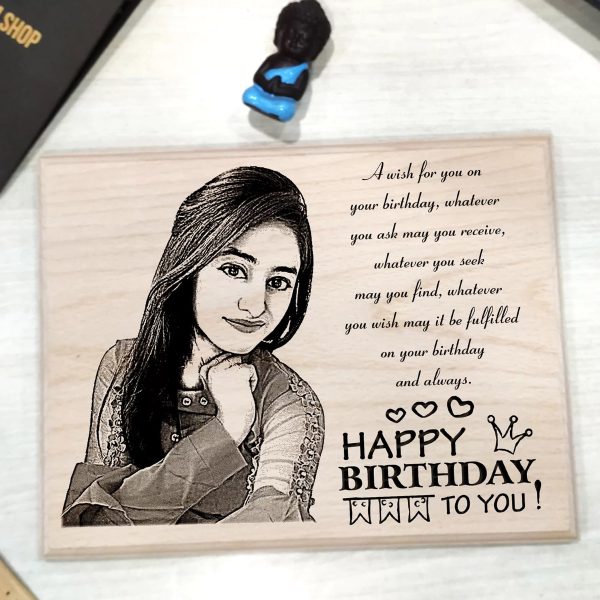 SHOP
A wish for you on
your birthday, whatever
you ask may you receive,
whatever you seek
may you find, whatever
you wish may it be fulfilled
on your birthday
and always.
HAPPY
BIRTHDAY,
TO YOU!